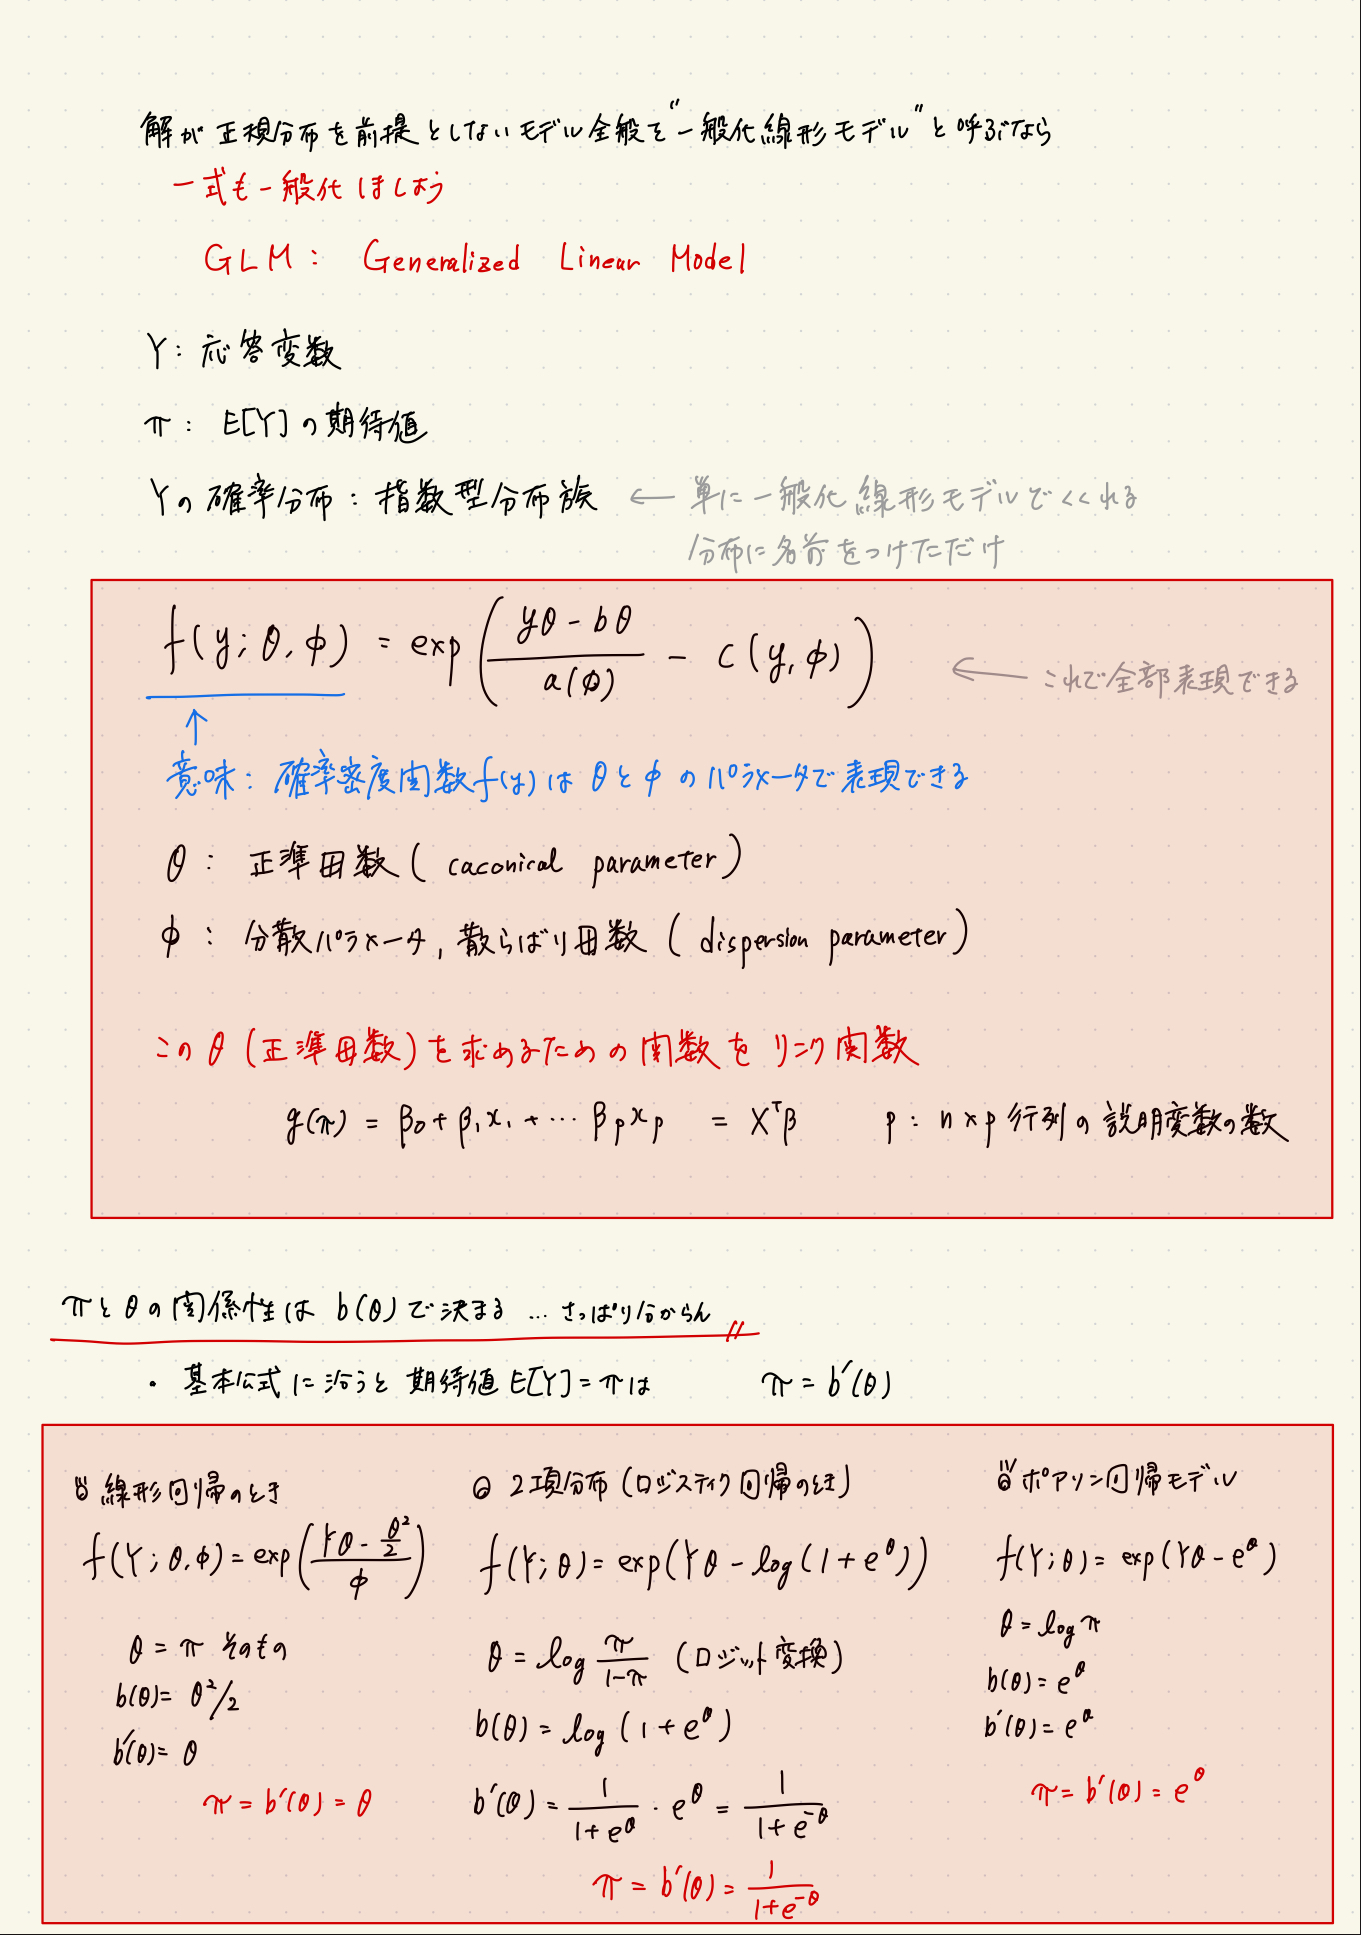 解が正規分布を前提としないモデル全般を"一般化線形モデル"と呼ぶなら
一式も一般化しましょう
GLM: Generalized Linear Model
Y: 応答変数
π: E[Y]の期待値
Yの確率分布: 指数型分布族 ← 単に一般化線形モデルでくくれる
分布に名前をつけただけ
f(y; θ, φ) = exp( (yθ - bθ)/a(φ) - c(y, φ) ) ← これで全部表現できる
↑
意味: 確率密度関数f(y)はθとφのパラメータで表現できる
θ: 正準母数( caconical parameter)
φ: 分散パラメータ, 散らばり母数( dispersion parameter)
このθ(正準母数)を求めるための関数をリンク関数
g(π) = β₀ + β₁x₁ + … βpxp = Xᵀβ p: n×p行列の説明変数の数
πとθの関係性はb(θ)で決まる … さっぱり分からん
・基本公式に沿うと期待値E[Y]=πは π = b′(θ)
線形回帰のとき
f(Y; θ, φ) = exp( (Yθ - θ²/2)/φ )
θ = π そのもの
b(θ) = θ²/2
b′(θ) = θ
π = b′(θ) = θ
2項分布(ロジスティク回帰のとき)
f(Y; θ) = exp(Yθ - log(1 + e^θ))
θ = log π/(1-π) (ロジット変換)
b(θ) = log(1 + e^θ)
b′(θ) = 1/(1+e^θ) · e^θ = 1/(1+e^-θ)
π = b′(θ) = 1/(1+e^-θ)
ポアソン回帰モデル
f(Y; θ) = exp(Yθ - e^θ)
θ = log π
b(θ) = e^θ
b′(θ) = e^θ
π = b′(θ) = e^θ